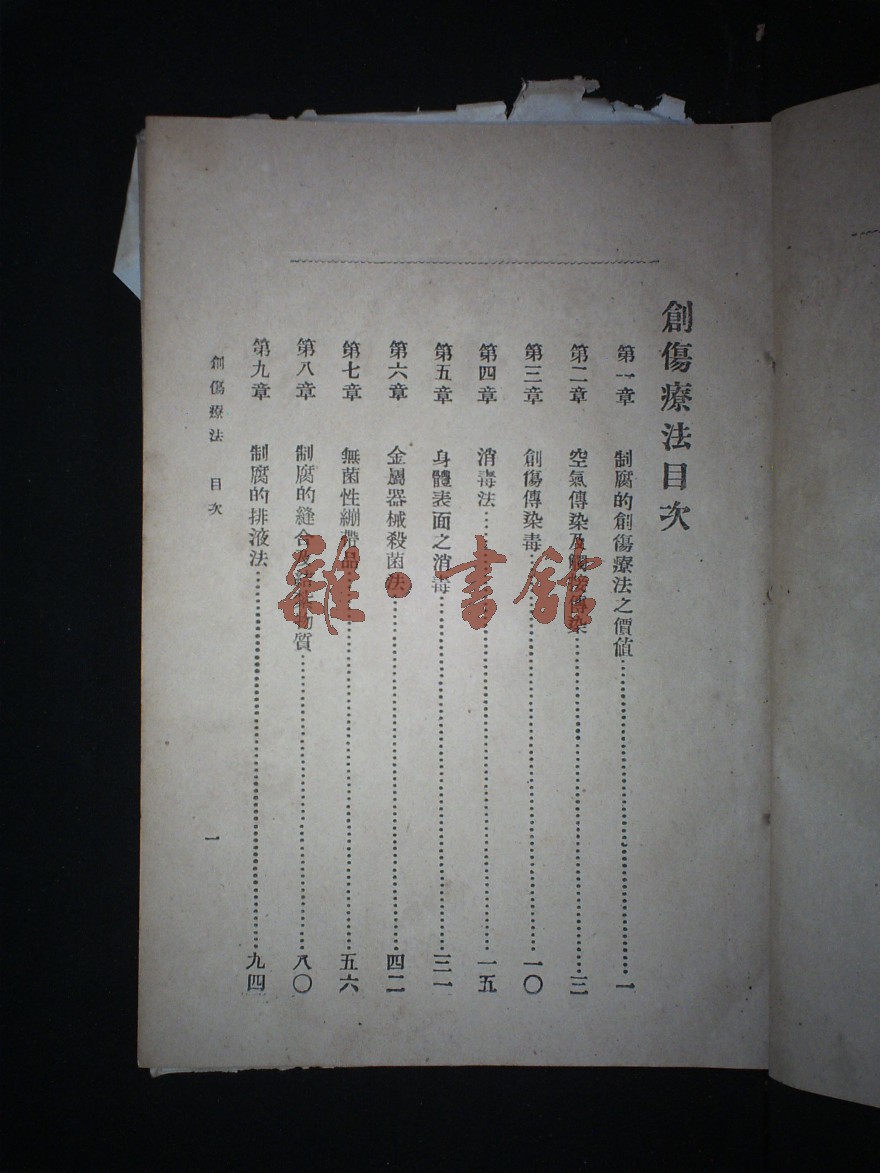 創傷療法目次
第一章 制腐的創傷療法之價值……一
第二章 空氣傳染及觸接傳染……三
第三章 創傷傳染毒……一〇
第四章 消毒法……一五
第五章 身體表面之消毒……三一
第六章 金屬器械殺菌法……四二
第七章 無菌性繃帶品……五六
第八章 制腐的縫合及結紮物質……八〇
第九章 制腐的排液法……九四
創傷療法 目次
一
雜·書館